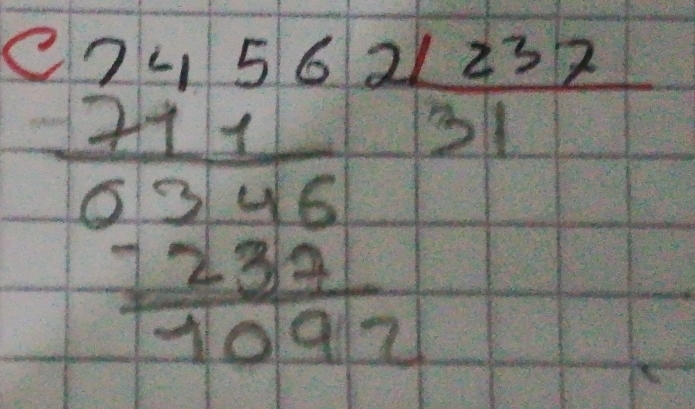 C 74562 | 237
- 711 31
0346
- 237
1092